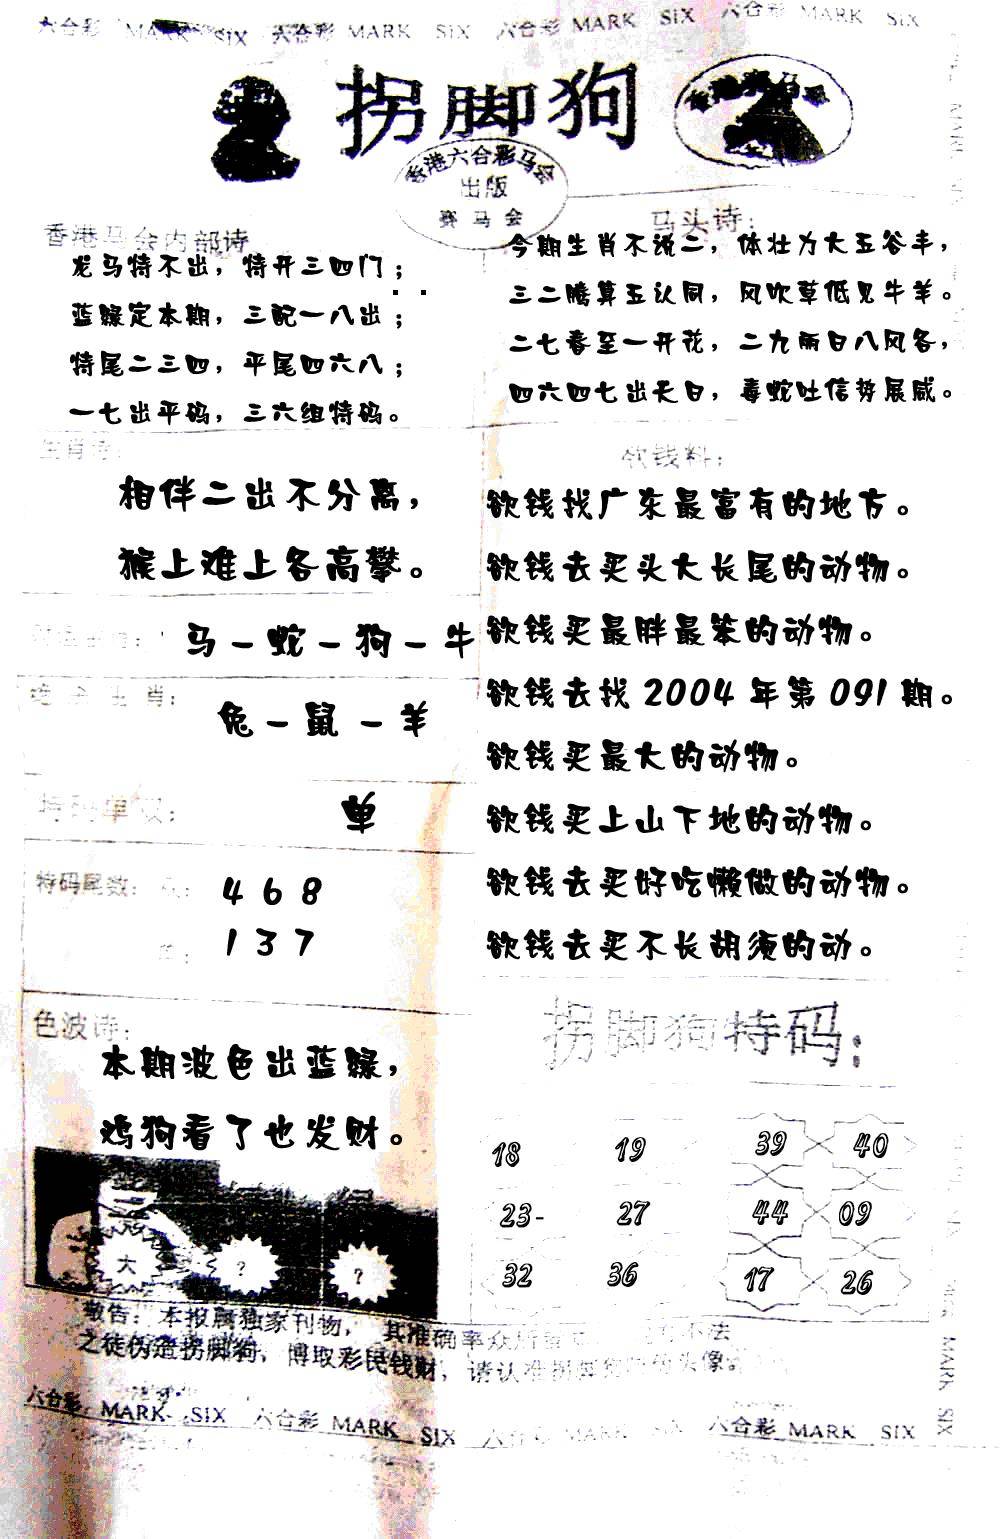 六合彩 MARK SIX 六合彩 MARK SIX 六合彩 MARK SIX 六合彩 MARK SIX
拐脚狗
香港六合彩马会
出版
赛马会
香港马会内部诗
龙马特不出，特开三四门；
蓝绿定本期，三配一八出；
特尾二三四，平尾四六八；
一七出平码，三六组特码。
马头诗：
今期生肖不说二，体壮力大五谷丰，
三二腾算五认同，风吹草低见牛羊。
二七春至一开花，二九雨日八风各，
四六四七出天日，毒蛇吐信势展威。
生肖诗：
相伴二出不分离，
猴上难上各高攀。
马－蛇－狗－牛
生肖：
兔－鼠－羊
特码单双：
单
特码尾数：
4 6 8
1 3 7
色波诗：
本期波色出蓝绿，
鸡狗看了也发财。
大 ? ?
欲钱料：
欲钱找广东最富有的地方。
欲钱去买头大长尾的动物。
欲钱买最胖最笨的动物。
欲钱去找 2004 年第 091 期。
欲钱买最大的动物。
欲钱买上山下地的动物。
欲钱去买好吃懒做的动物。
欲钱去买不长胡须的动。
拐脚狗特码：
18 19 39 40
23- 27 44 09
32 36 17 26
敬告：本报属独家刊物，其准确率众所 不法
之徒伪造拐脚狗，博取彩民钱财，请认准拐脚狗 头像。
六合彩 MARK SIX 六合彩 MARK SIX 六合彩 MARK SIX 六合彩 MARK SIX
MARK SIX